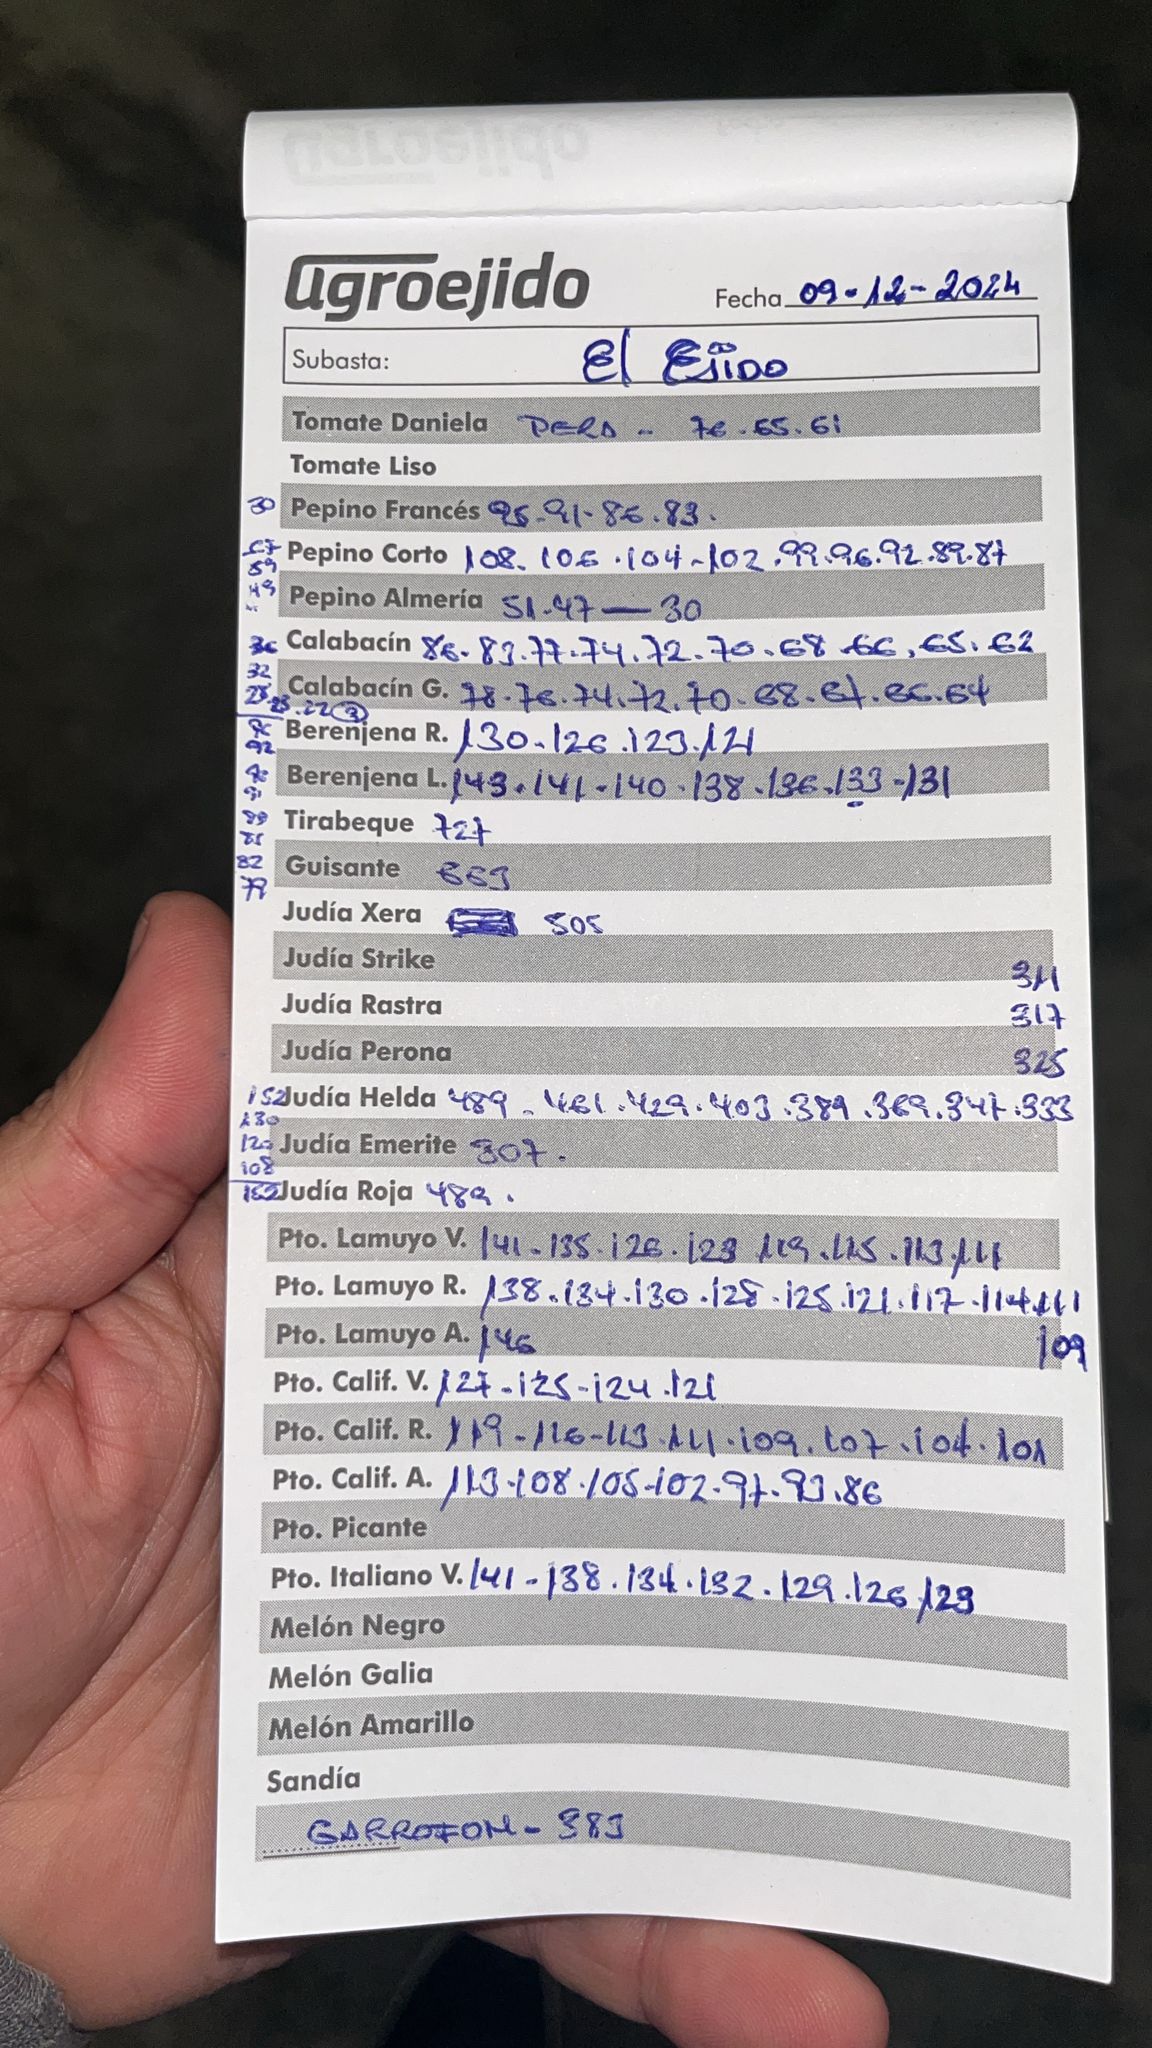 agroejido
Fecha 09-12-2024
Subasta: El Ejido
Tomate Daniela PERA - 76.65.61
Tomate Liso
30 Pepino Francés 95-91-86.83.
Pepino Corto 108.106.104-102.99.96.92.89.87
59
49 Pepino Almería 51-47—30
36 Calabacín 86-83.77-74.72.70.68.66.65.62
32
28 Calabacín G. 78-76.74.72.70.68.67.66.64
Berenjena R. 130-126.123.121
92
Berenjena L. 143.141-140.138.136.133-131
91
89 Tirabeque 727
85
82 Guisante 663
79
Judía Xera 505
Judía Strike 311
Judía Rastra 317
Judía Perona 325
152 Judía Helda 489-461.429.403.389.369.347.333
130
120 Judía Emerite 307.
108
152 Judía Roja 489.
Pto. Lamuyo V. 141-135.126.123 119.115.113.111
Pto. Lamuyo R. 138.134.130.128.125.121.117.114.111
Pto. Lamuyo A. 146 109
Pto. Calif. V. 127-125-124.121
Pto. Calif. R. 119-116-113.111.109.107.104.101
Pto. Calif. A. 113-108.105-102.97.93.86
Pto. Picante
Pto. Italiano V. 141-138.134.132.129.126.123
Melón Negro
Melón Galia
Melón Amarillo
Sandía
GARROFON-383